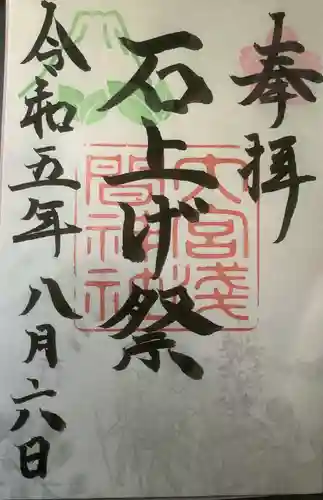 奉拝
石上げ祭
大宮浅間神社
令和五年八月六日